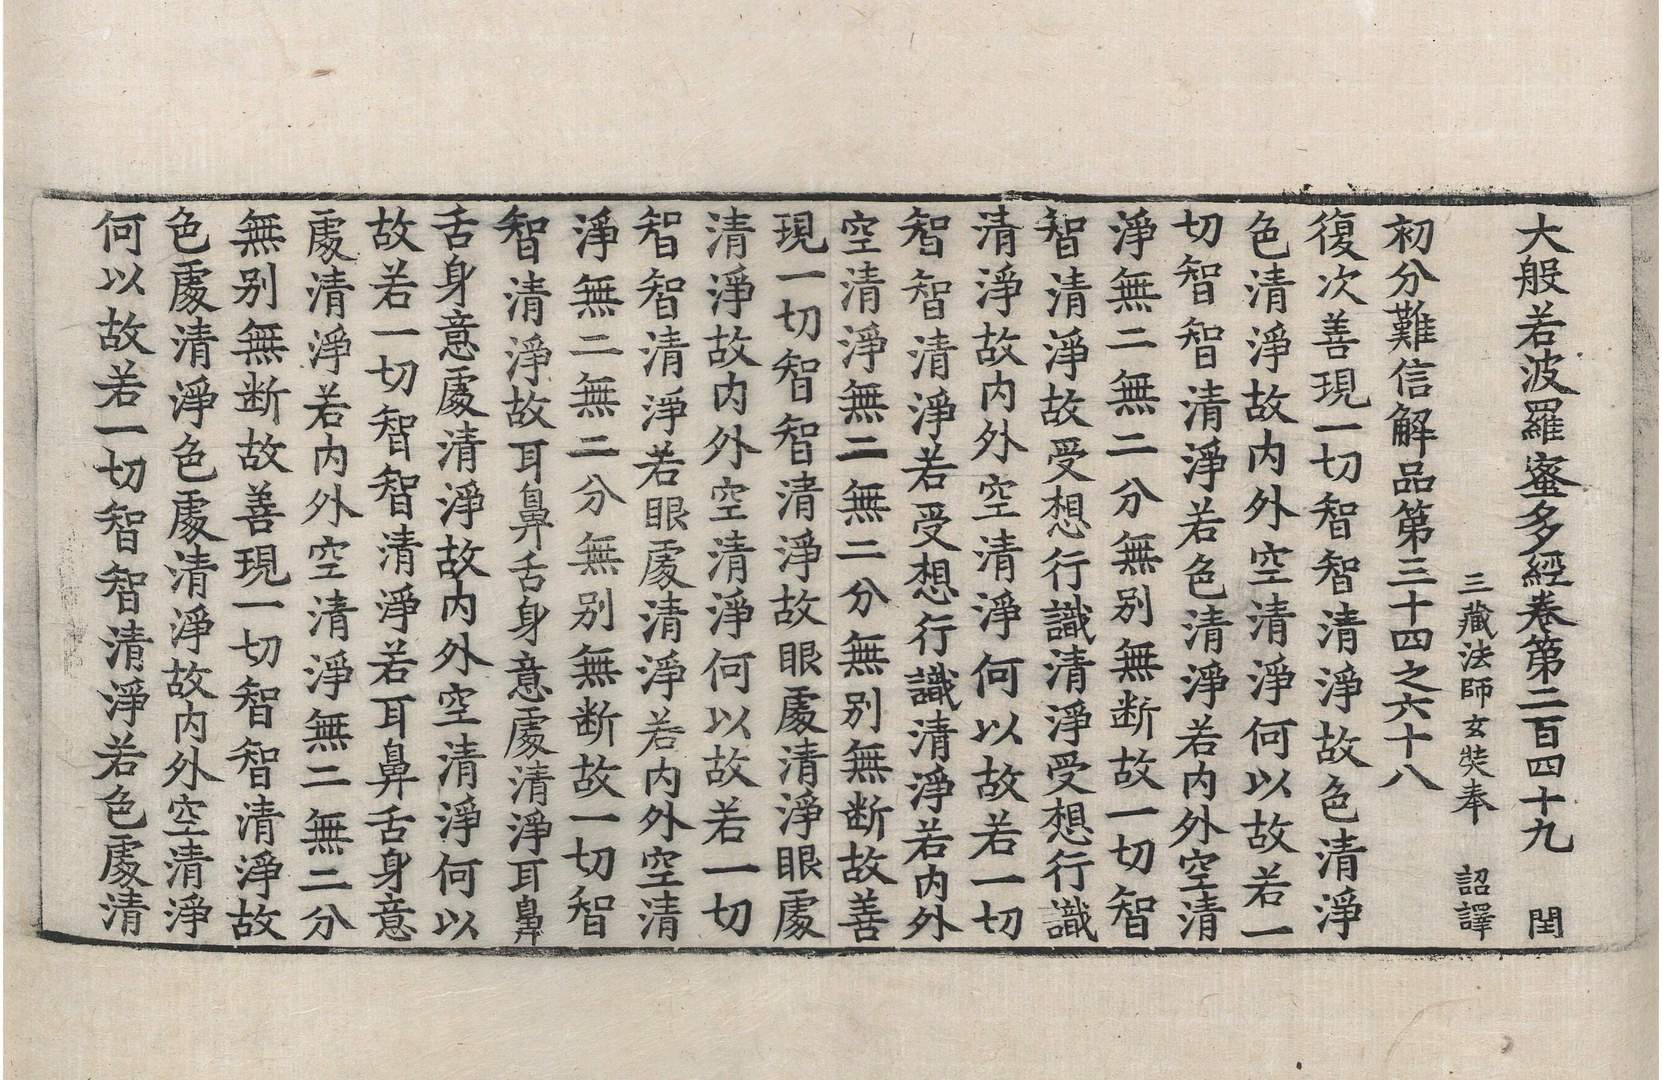 大般若波羅蜜多經卷第二百四十九 閏
三藏法師玄奘奉 詔譯
初分難信解品第三十四之六十八
復次善現一切智智清淨故色清淨
色清淨故内外空清淨何以故若一
切智智清淨若色清淨若内外空清
淨無二無二分無别無断故一切智
智清淨故受想行識清淨受想行識
清淨故内外空清淨何以故若一切
智智清淨若受想行識清淨若内外
空清淨無二無二分無别無断故善
現一切智智清淨故眼處清淨眼處
清淨故内外空清淨何以故若一切
智智清淨若眼處清淨若内外空清
淨無二無二分無别無断故一切智
智清淨故耳鼻舌身意處清淨耳鼻
舌身意處清淨故内外空清淨何以
故若一切智智清淨若耳鼻舌身意
處清淨若内外空清淨無二無二分
無别無断故善現一切智智清淨故
色處清淨色處清淨故内外空清淨
何以故若一切智智清淨若色處清